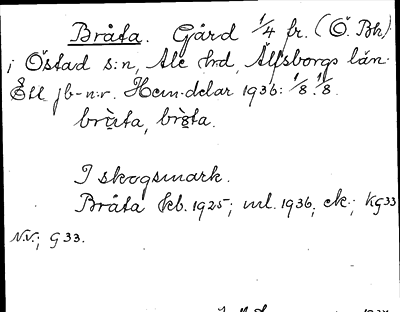 Bråta. Gård 1/4 fr. (Ö. Bk)
i Östad s:n, Ale hd, Älfsborgs län.
Ett jb-n:r. Hem.delar 1936: 1/8. 1/8.
I skogsmark.
Bråta kb. 1925; ml. 1936, ek.; Kg 33
N.V.; g 33.